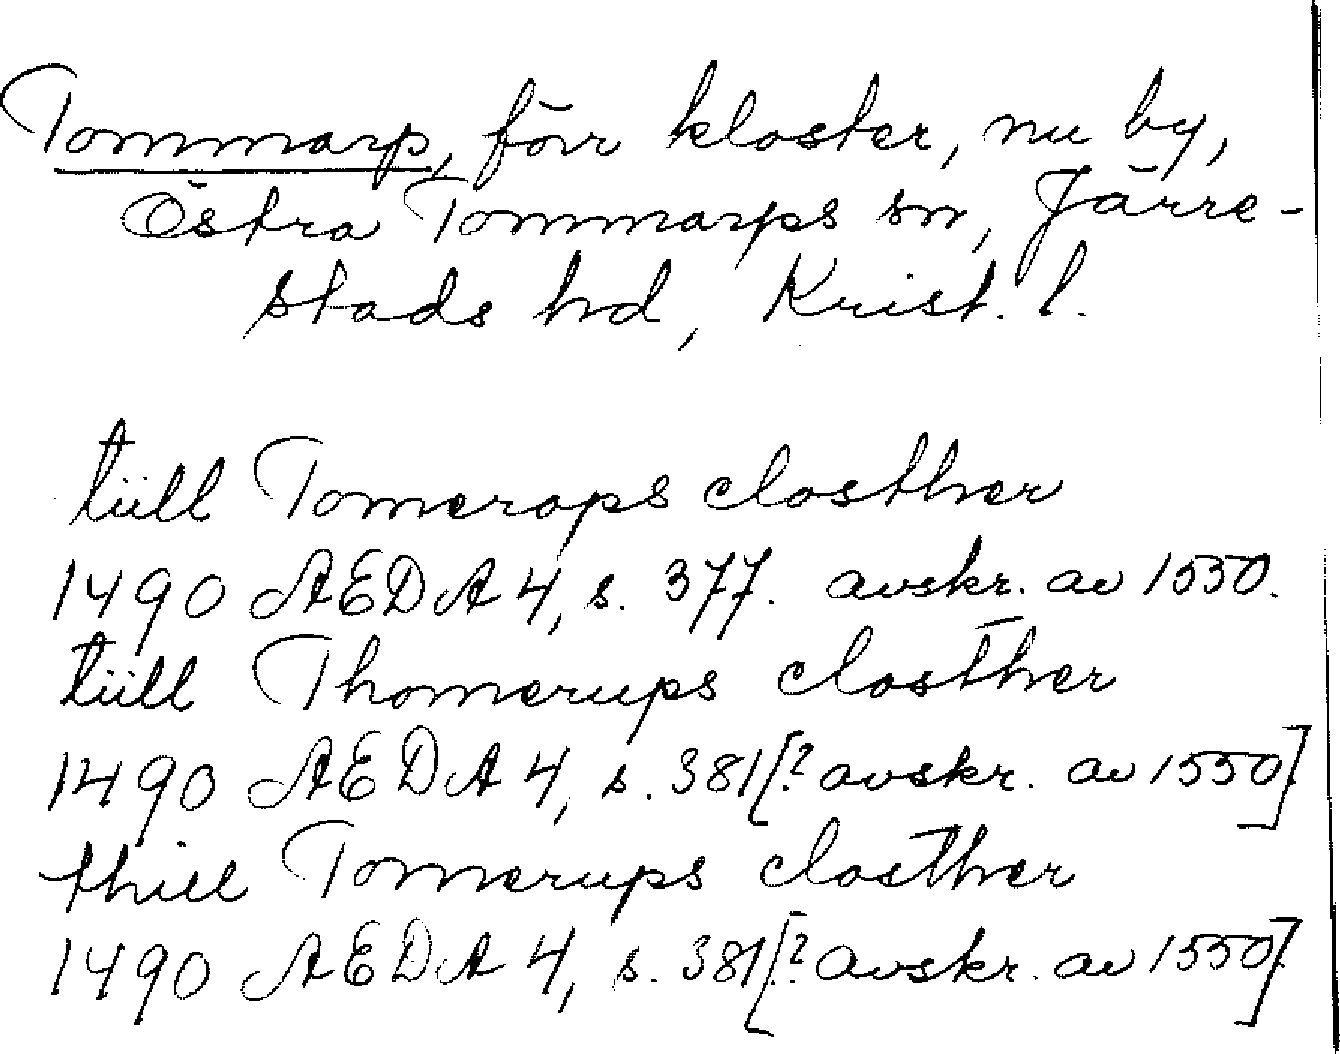 Tommarp, förr kloster, nu by,
Östra Tommarps sn, Järre-
stads hd, Krist. l.
tiill Tomerops closther
1490 ÆDA 4, s. 377. avskr. av 1550.
tiill Thomerups closther
1490 ÆDA 4, s. 381[? avskr. av 1550]
thill Tomerups closther
1490 ÆDA 4, s. 381[? avskr. av 1550]